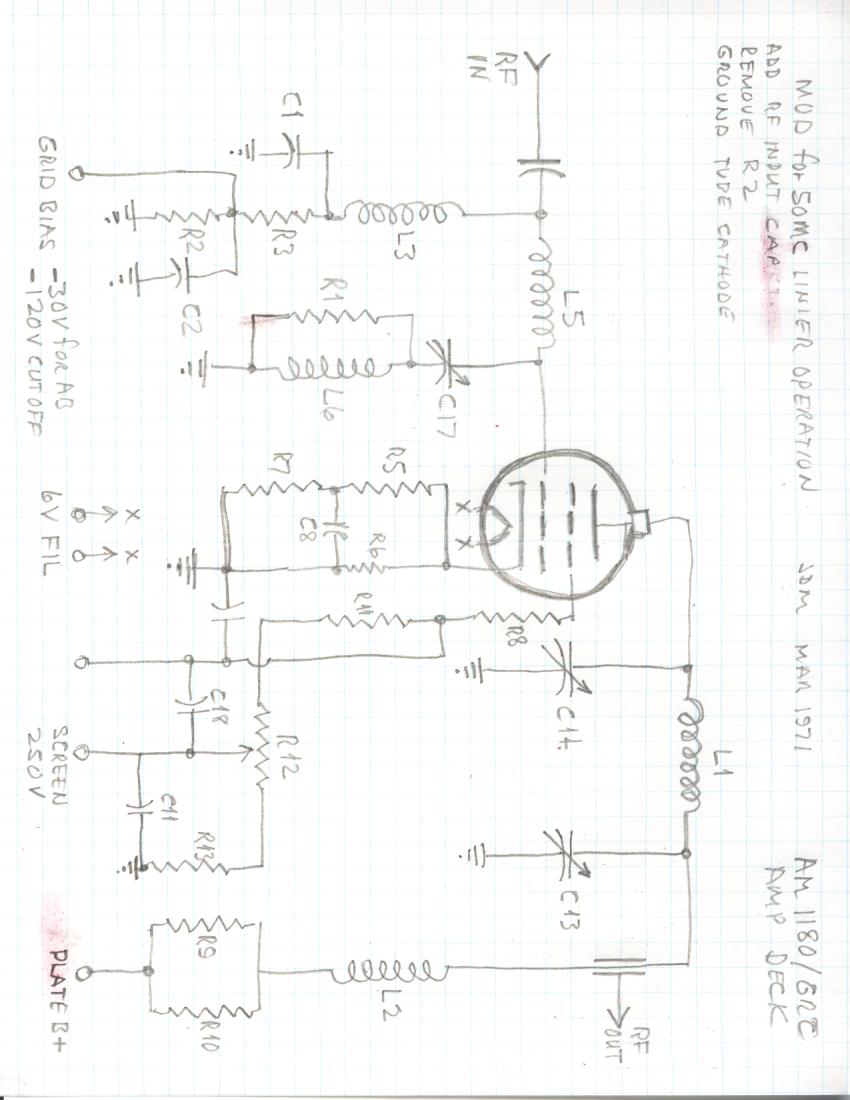 MOD for 50MC LINIER OPERATION JDM MAR 1971
ADD RF INPUT CAP
REMOVE R2
GROUND TUDE CATHODE
AM 1180/GRC
AMP DECK
RF
IN
L5
L1
C1
L3
R3
R2
C2
R1
L6
C17
R7
R5
C8
R6
X
X
R11
R8
C14
C13
C18
R12
C11
R13
R9
R10
L2
RF
OUT
GRID BIAS -30V for AB
-120V CUTOFF
6V FIL
X
X
SCREEN
250V
PLATE B+